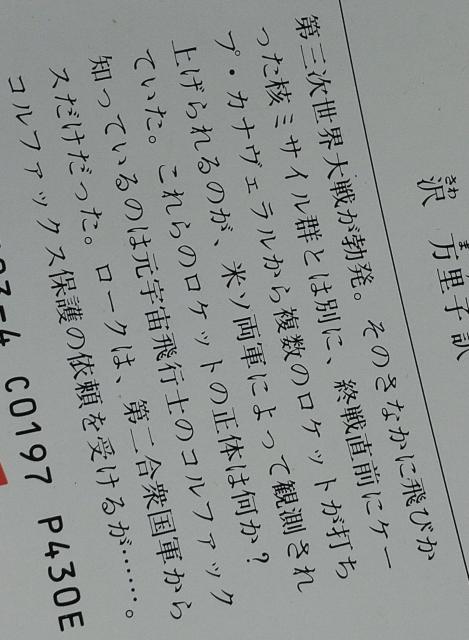 沢 万里子訳
さわ ま
第三次世界大戦が勃発。そのさなかに飛びか
った核ミサイル群とは別に、終戦直前にケー
プ・カナヴェラルから複数のロケットが打ち
上げられるのが、米ソ両軍によって観測され
ていた。これらのロケットの正体は何か？
知っているのは元宇宙飛行士のコルファック
スだけだった。ロークは、第二合衆国軍から
コルファックス保護の依頼を受けるが……。
3-4 C0197 P430E